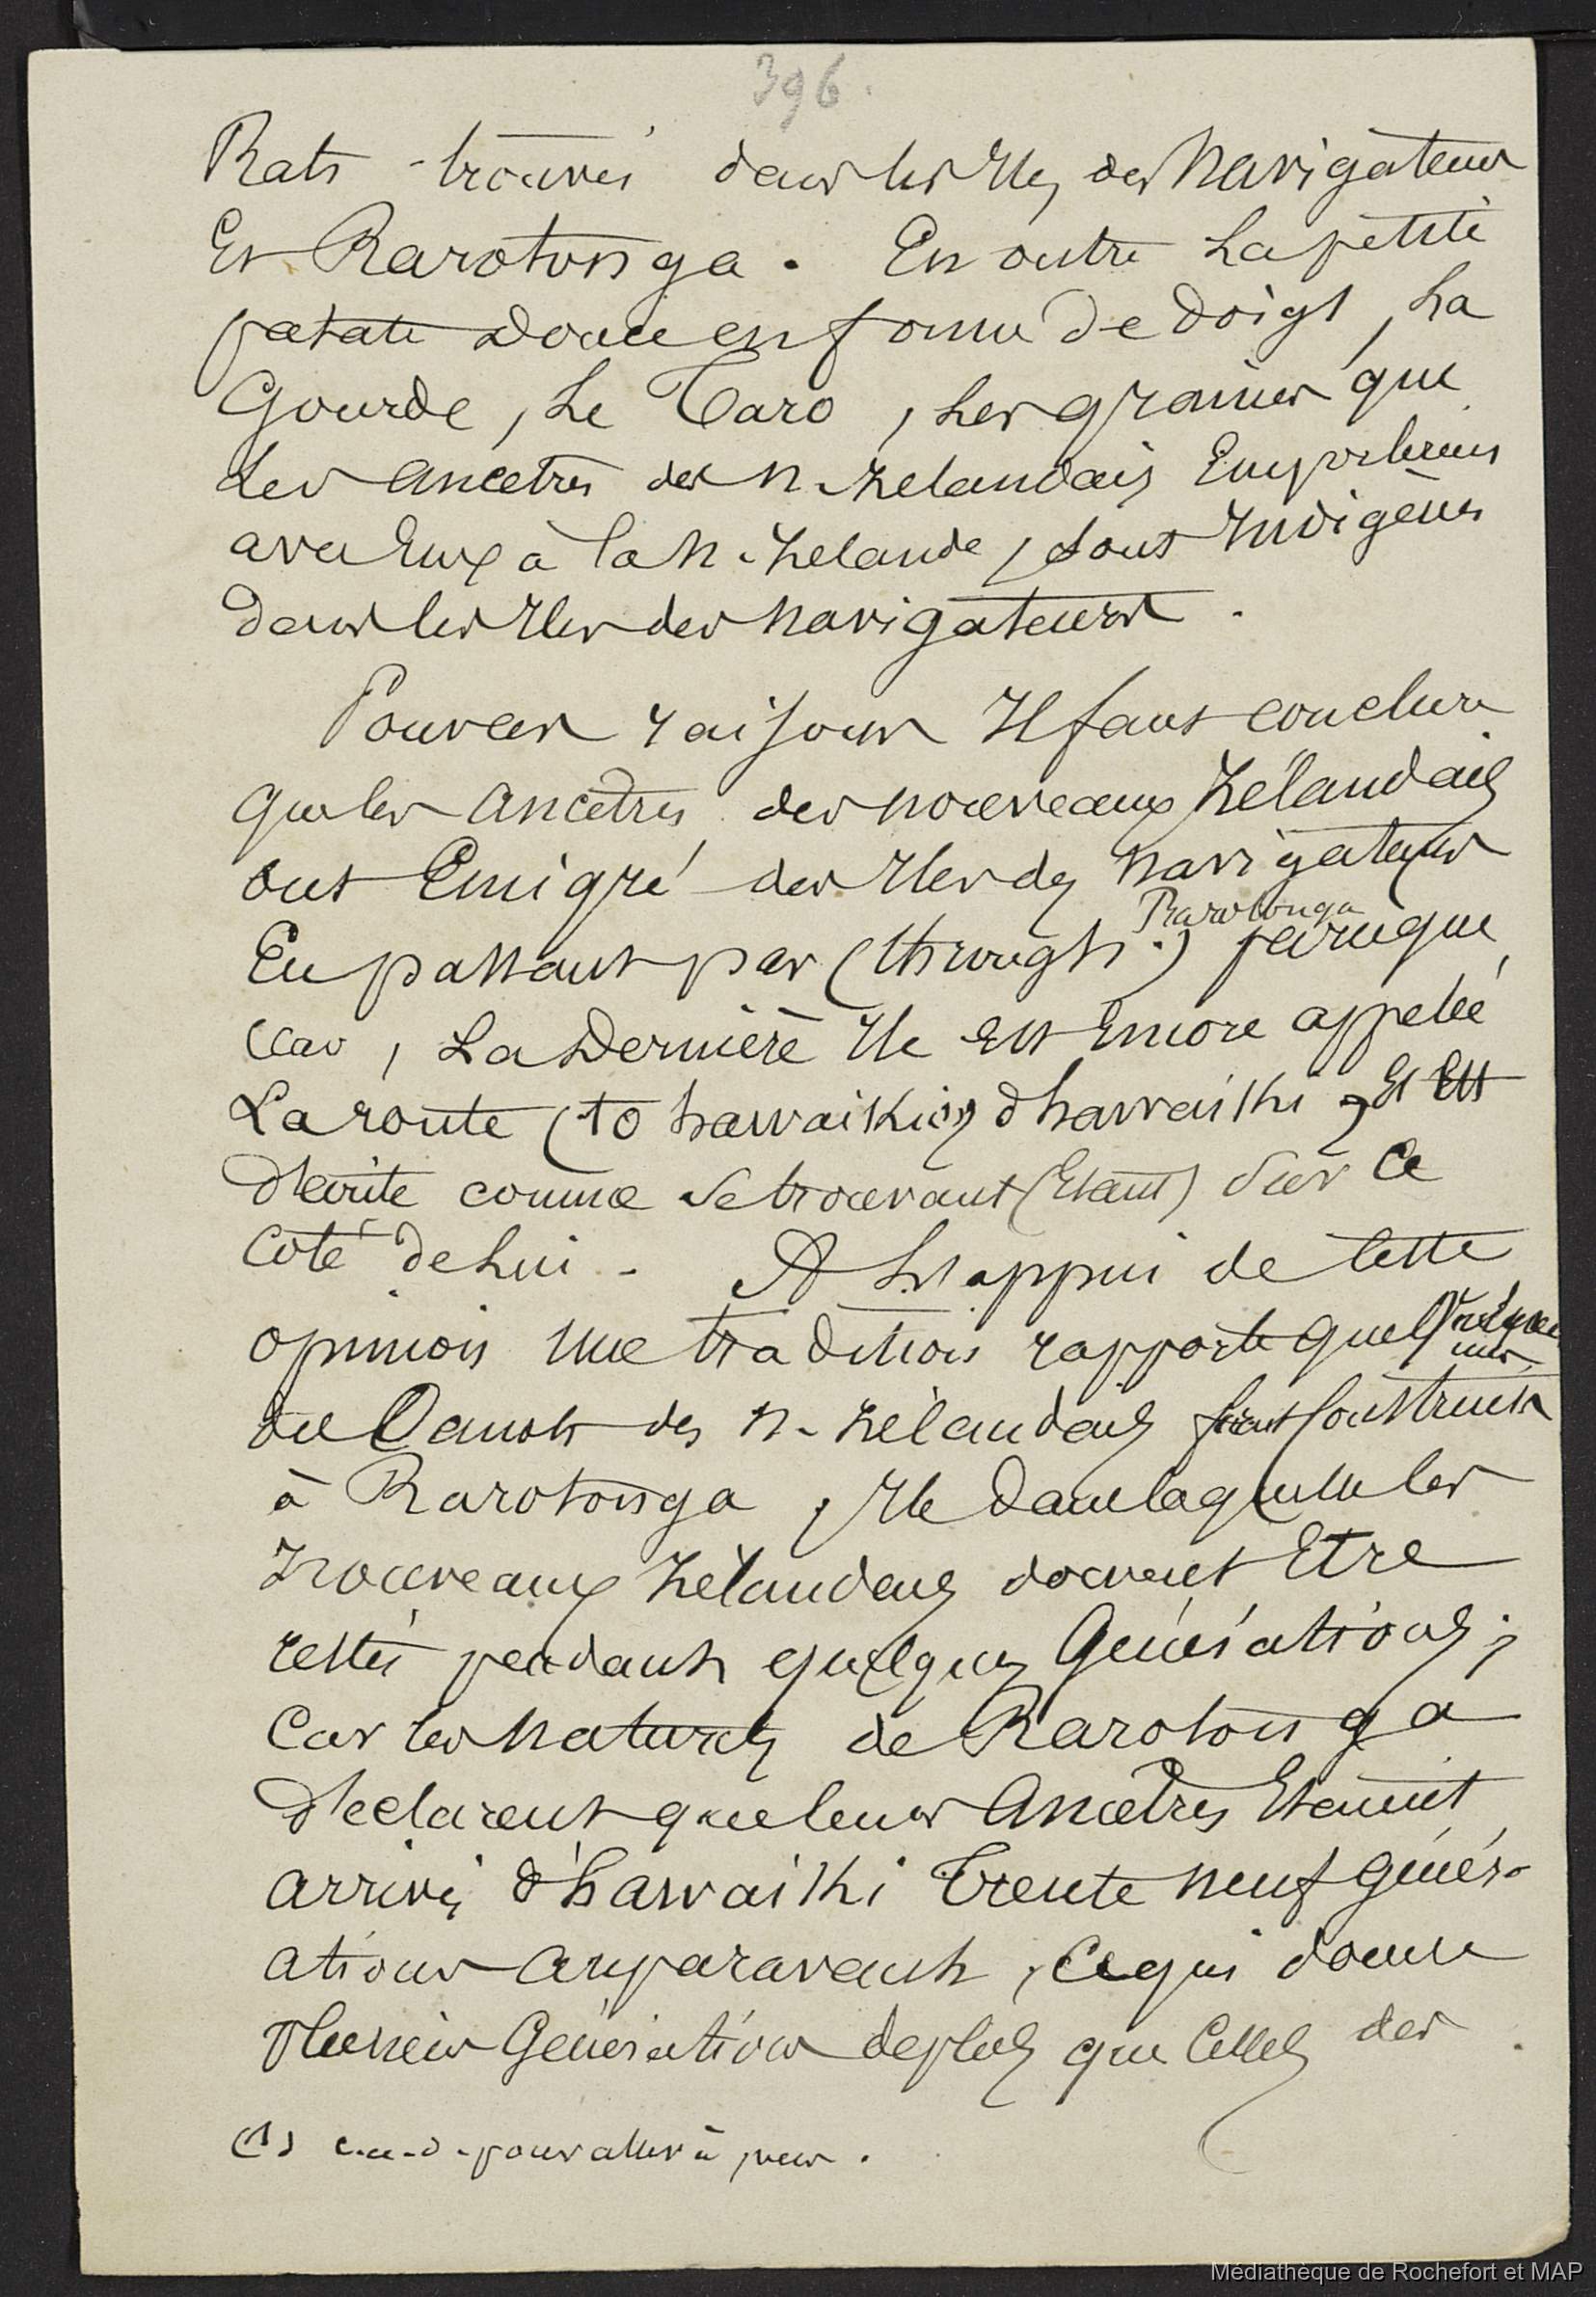 396.
Rats trouvés dans les Iles des Navigateurs
Et Rarotonga. En outre La petite
patate Douce en forme de doigt, La
Gourde, Le Taro, Les graines que
Les ancetres des N. Zelandais Emporterent
avec Eux à la N. Zelande, sont Indigènes
dans les Iles des Navigateurs.
Pour ces raisons Il faut conclure
que les ancêtres des nouveaux Zélandais
ont Emigré des Iles des Navigateurs
Rarotonga
En passant par (through.) puisque
Car, La Dernière Ile est Encore appelée
La route (to hawaiki(1)) d'hawaiki, Et Est
décrite comme se trouvant (Etant) sur ce
Côté de Lui. A L'appui de cette
opinion une tradition rapporte que
des Canots des N. Zélandais furent construits
à Rarotonga, Ile dans laquelle les
Nouveaux Zélandais doivent Etre
restés pendant quelques Générations;
Car les Naturels de Rarotonga
déclarent que leurs Ancêtres Etaient
arrivés d'hawaiki Trente neuf génér-
ations auparavant, Ce qui donne
Plusieurs Générations de plus que Celles des
(1) c.-a-d. pour aller à
Médiathèque de Rochefort et MAP